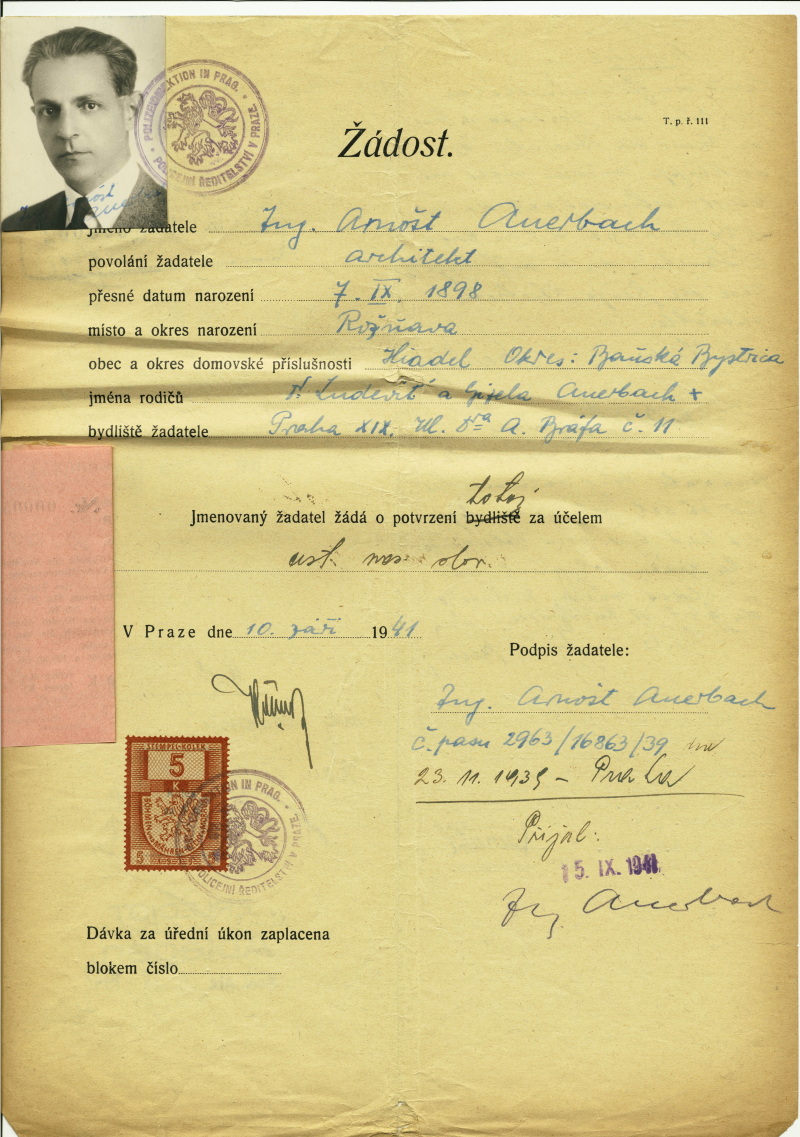 POLIZEIDIREKTION IN PRAG.
POLICEJNÍ ŘEDITELSTVÍ V PRAZE.
T. p. ř. 111
Žádost.
jméno žadatele Ing. Arnošt Auerbach
povolání žadatele architekt
přesné datum narození 7. IX. 1898
místo a okres narození Rožňava
obec a okres domovské příslušnosti Hiadel Okres: Baňská Bystrica
jména rodičů Dr Ludevít a Gisela Auerbach
bydliště žadatele Praha XIX. Ul. Dra A. Bráfa č. 11
totož
Jmenovaný žadatel žádá o potvrzení bydliště za účelem
V Praze dne 10. září 1941
Podpis žadatele:
Ing. Arnošt Auerbach
č. pasu 2963/16863/39 dne
23. 11. 1939 – Praha
Přijal:
15. IX. 1941
Ing Auerbach
STEMPEL-KOLEK
5
K
BÖHMEN UND MÄHREN
5
POLICEJNÍ ŘEDITELSTVÍ V PRAZE.
Dávka za úřední úkon zaplacena
blokem číslo